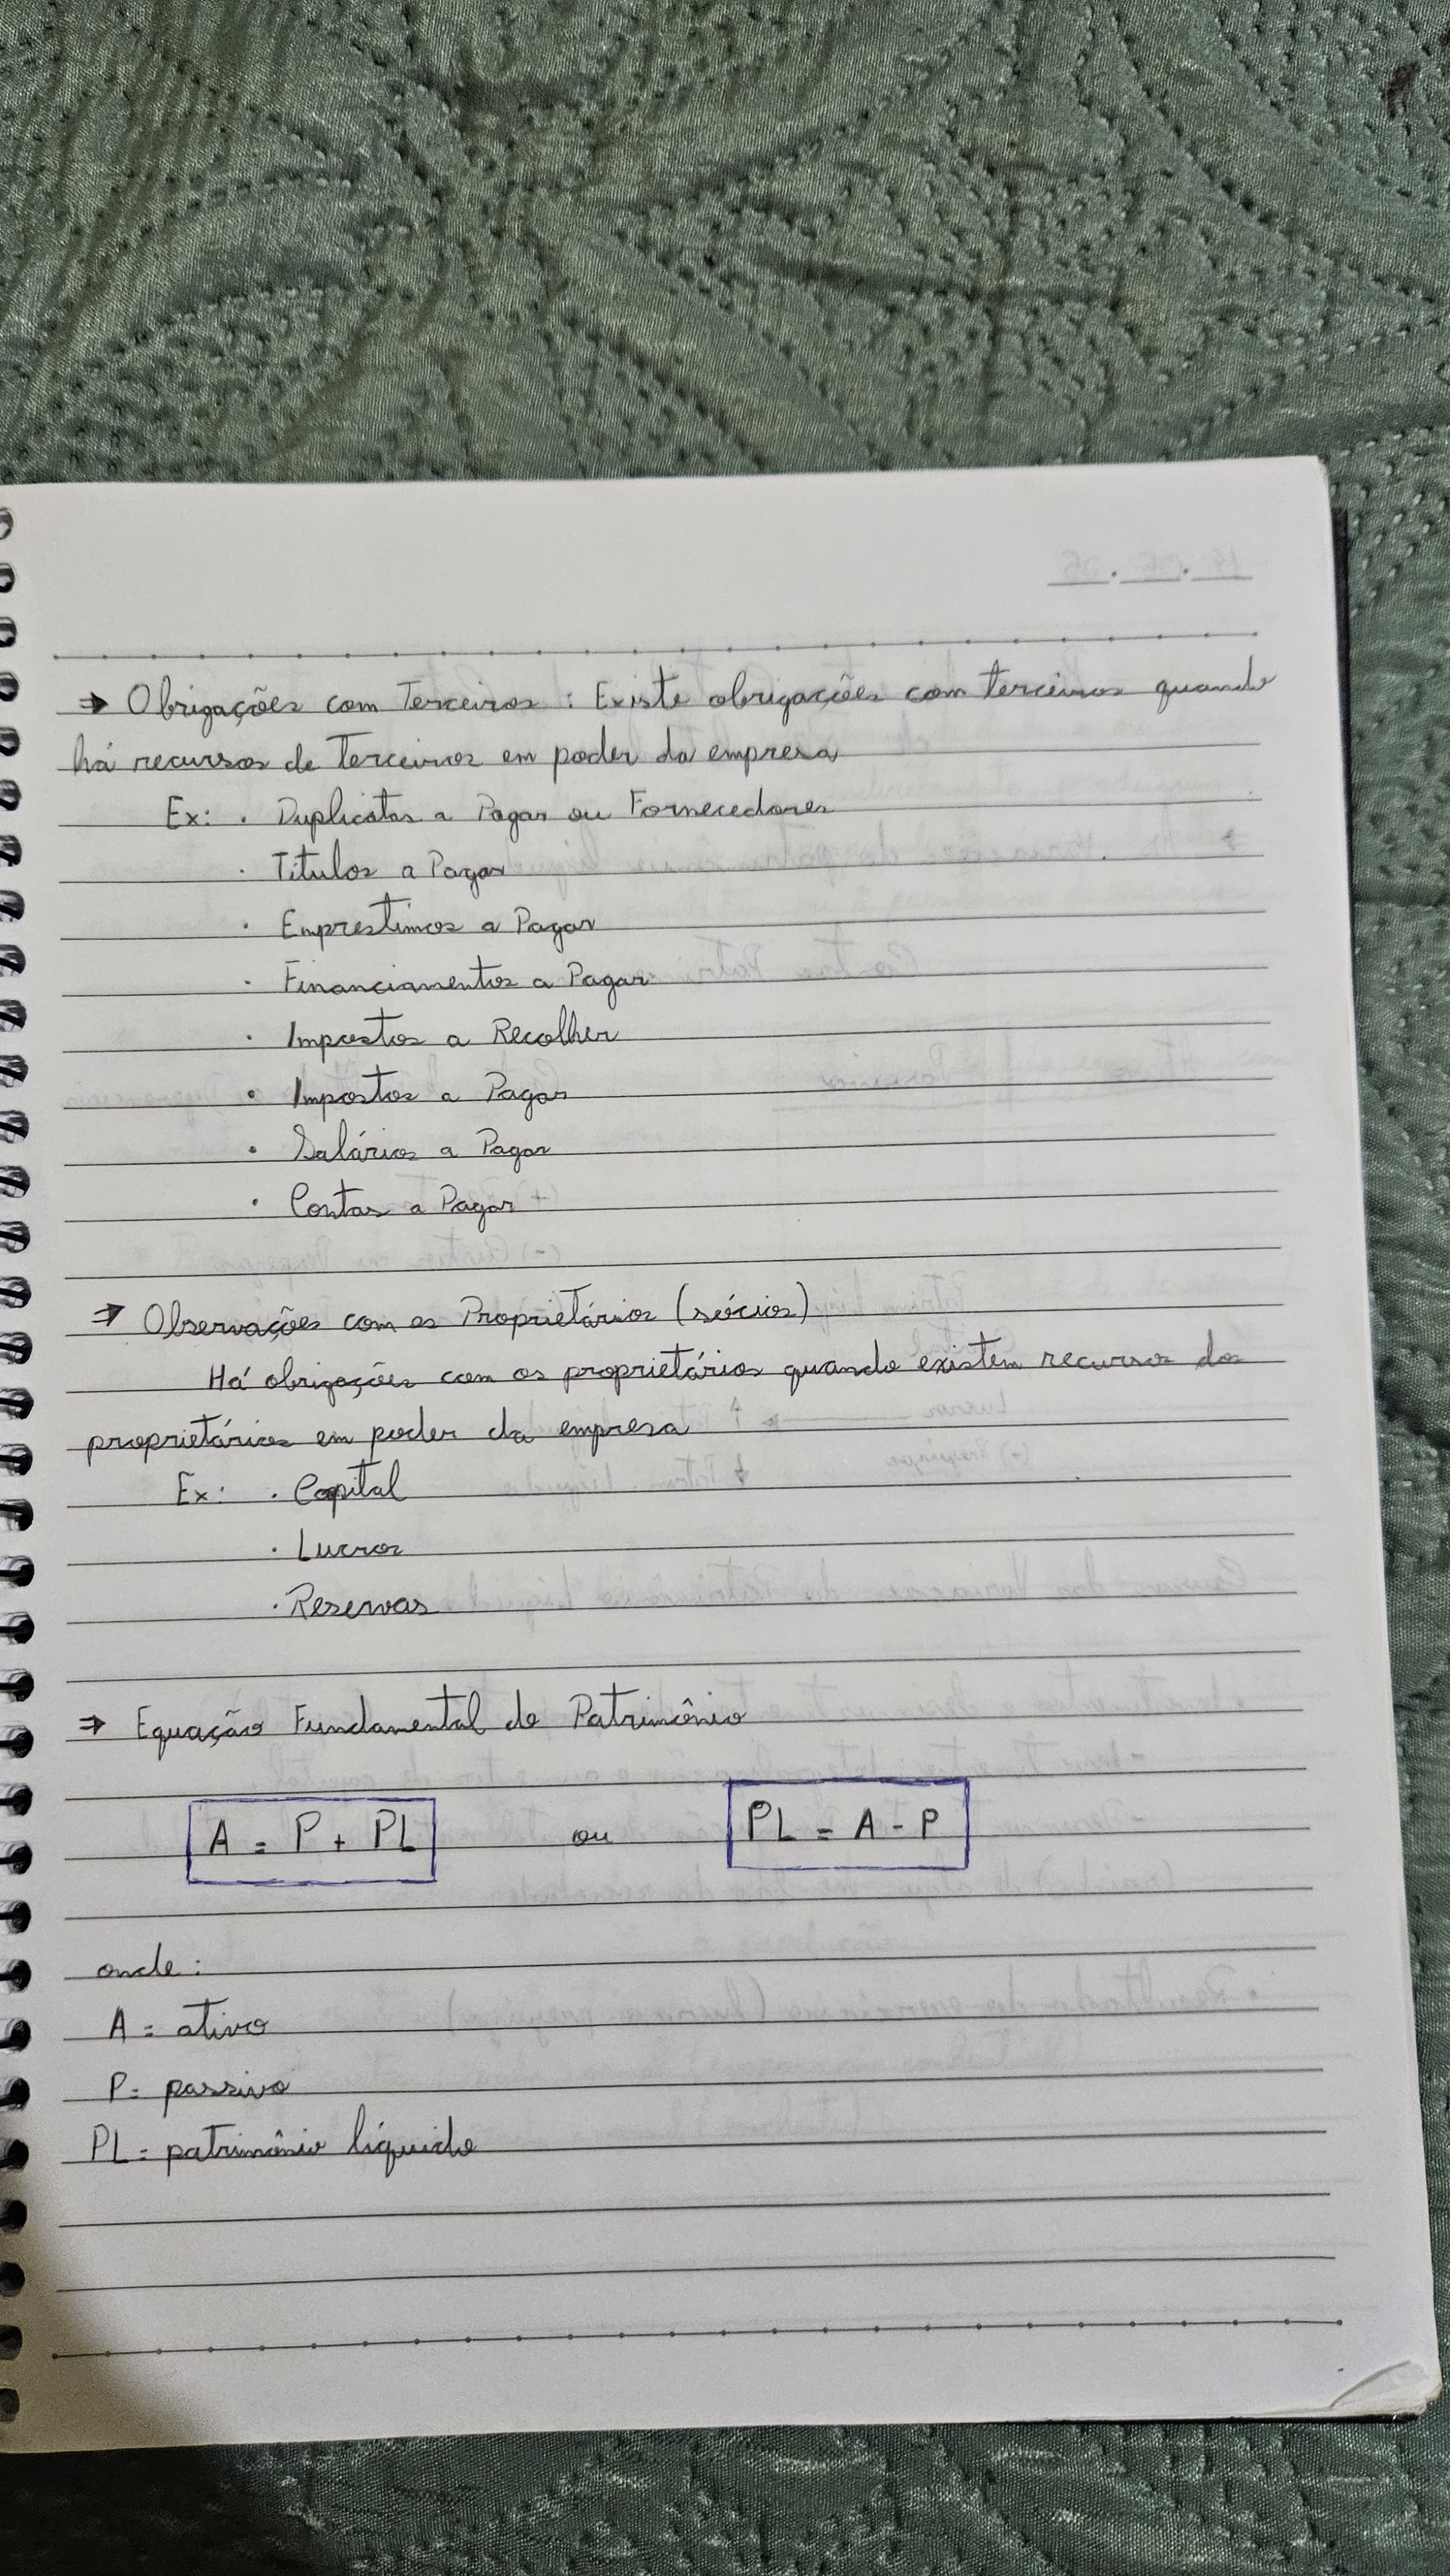 ⇒ Obrigações com Terceiros : Existe obrigações com terceiros quando
há recursos de terceiros em poder da empresa
Ex: . Duplicatas a Pagar ou Fornecedores
. Títulos a Pagar
. Emprestimos a Pagar
. Financiamentos a Pagar
. Impostos a Recolher
. Impostos a Pagar
. Salários a Pagar
. Contas a Pagar
⇒ Observações com os Proprietários (sócios)
Há obrigações com os proprietários quando existem recursos dos
proprietários em poder da empresa
Ex: . Capital
. Lucros
. Reservas
⇒ Equação Fundamental do Patrimônio
A = P + PL ou PL = A - P
onde:
A = ativo
P = passivo
PL = patrimônio líquido